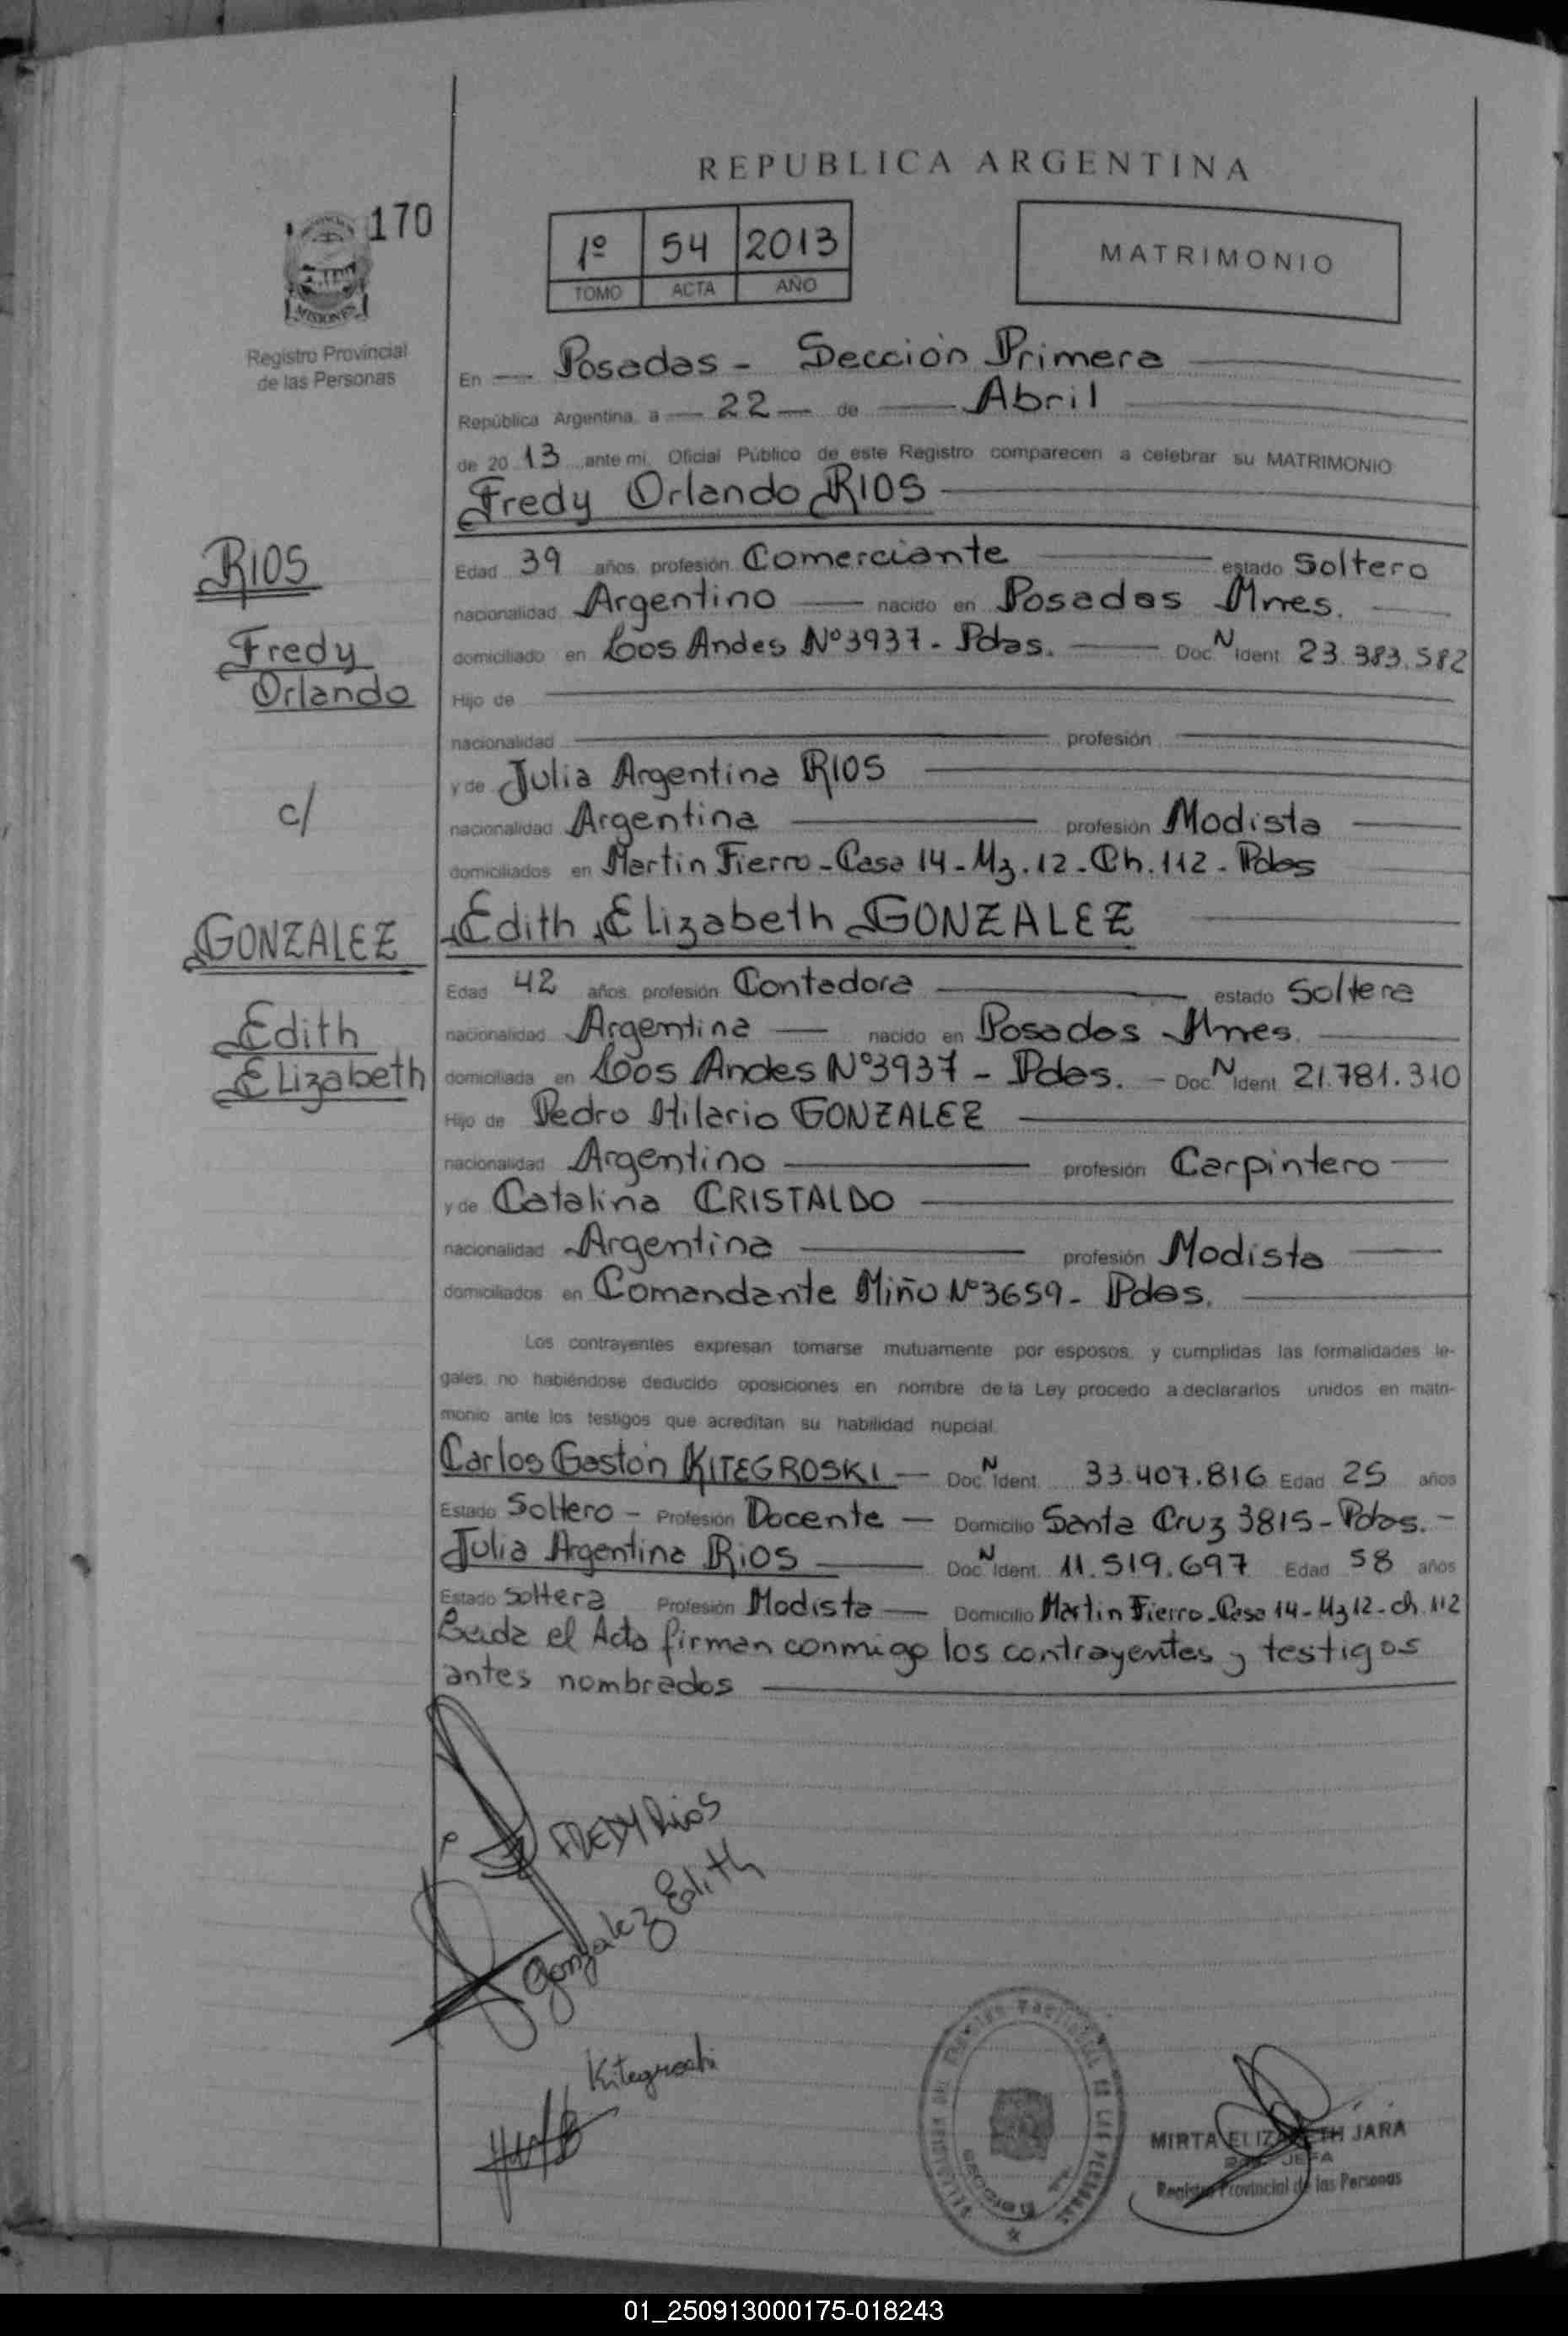 REPUBLICA ARGENTINA
170
1º 54 2013
TOMO ACTA AÑO
MATRIMONIO
MISIONES
Registro Provincial
de las Personas
En Posadas - Sección Primera
República Argentina, a 22 de Abril
de 20 13 ante mi, Oficial Público de este Registro comparecen a celebrar su MATRIMONIO
Fredy Orlando RIOS
RIOS
Fredy
Orlando
c/
GONZALEZ
Edith
Elizabeth
Edad 39 años, profesión Comerciante estado Soltero
nacionalidad Argentino nacido en Posadas Mnes.
domiciliado en Los Andes Nº 3937 - Pdas. Doc. N Ident 23.383.582
Hijo de
nacionalidad profesión
y de Julia Argentina RIOS
nacionalidad Argentina profesión Modista
domiciliados en Martin Fierro - Casa 14 - Mz. 12 - Ch. 112 - Pdas
Edith Elizabeth GONZALEZ
Edad 42 años, profesión Contadora estado Soltera
nacionalidad Argentina nacido en Posadas Mnes.
domiciliada en Los Andes Nº 3937 - Pdas. - Doc. N Ident 21.781.310
Hijo de Pedro Hilario GONZALEZ
nacionalidad Argentino profesión Carpintero
y de Catalina CRISTALDO
nacionalidad Argentina profesión Modista
domiciliados en Comandante Miño Nº 3659 - Pdas.
Los contrayentes expresan tomarse mutuamente por esposos, y cumplidas las formalidades le-
gales, no habiéndose deducido oposiciones en nombre de la Ley procedo a declararlos unidos en matri-
monio ante los testigos que acreditan su habilidad nupcial.
Carlos Gastón KITEGROSKI - Doc. N Ident. 33.407.816 Edad 25 años
Estado Soltero - Profesión Docente - Domicilio Santa Cruz 3815 - Pdas. -
Julia Argentina RiOS Doc. N Ident. 11.519.697 Edad 58 años
Estado Soltera Profesión Modista - Domicilio Martin Fierro - Casa 14 - Mz 12 - ch. 112
Leida el Acta firman conmigo los contrayentes y testigos
antes nombrados
FREDY Rios
Gonzalez Edith
Kitegroski
MIRTA ELIZABETH JARA
JEFA
Registro Provincial de las Personas
01_250913000175-018243